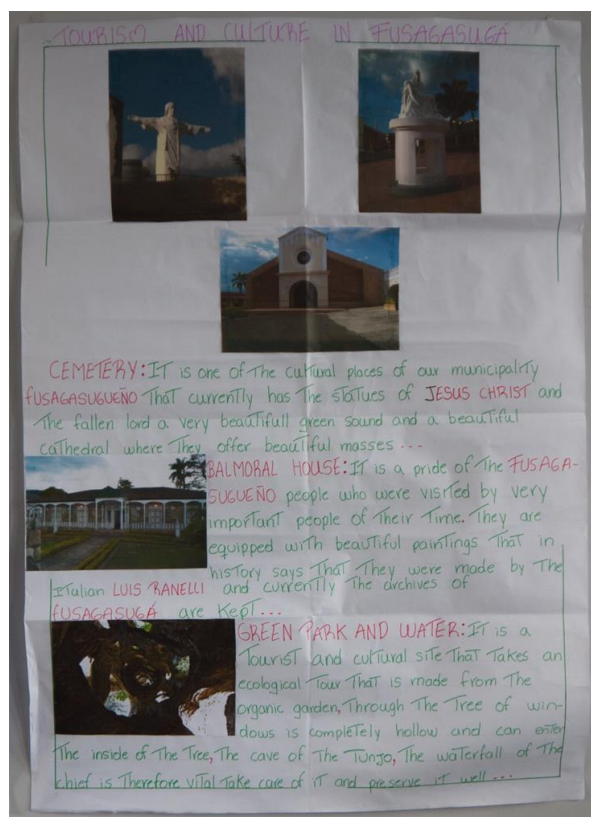 TOURISM AND CULTURE IN FUSAGASUGÁ
CEMETERY: IT is one of The cultural places of our municipality
FUSAGASUGUEÑO That currently has The statues of JESUS CHRIST and
The fallen lord a very beautifull green sound and a beautiful
cathedral where They offer beautiful masses ...
BALMORAL HOUSE: IT is a pride of The FUSAGA-
SUGUEÑO people who were visited by very
important people of Their Time. They are
equipped with beautiful paintings That in
history says That They were made by The
Italian LUIS RANELLI and currently The archives of
FUSAGASUGÁ are Kept...
GREEN PARK AND WATER: IT is a
Tourist and cultural site That Takes an
ecological Tour That is made from The
organic garden, Through The Tree of win-
dows is completely hollow and can enter
The inside of The Tree, The cave of The Tunjo, The waterfall of The
chief is Therefore vital Take care of iT and preserve iT well ...